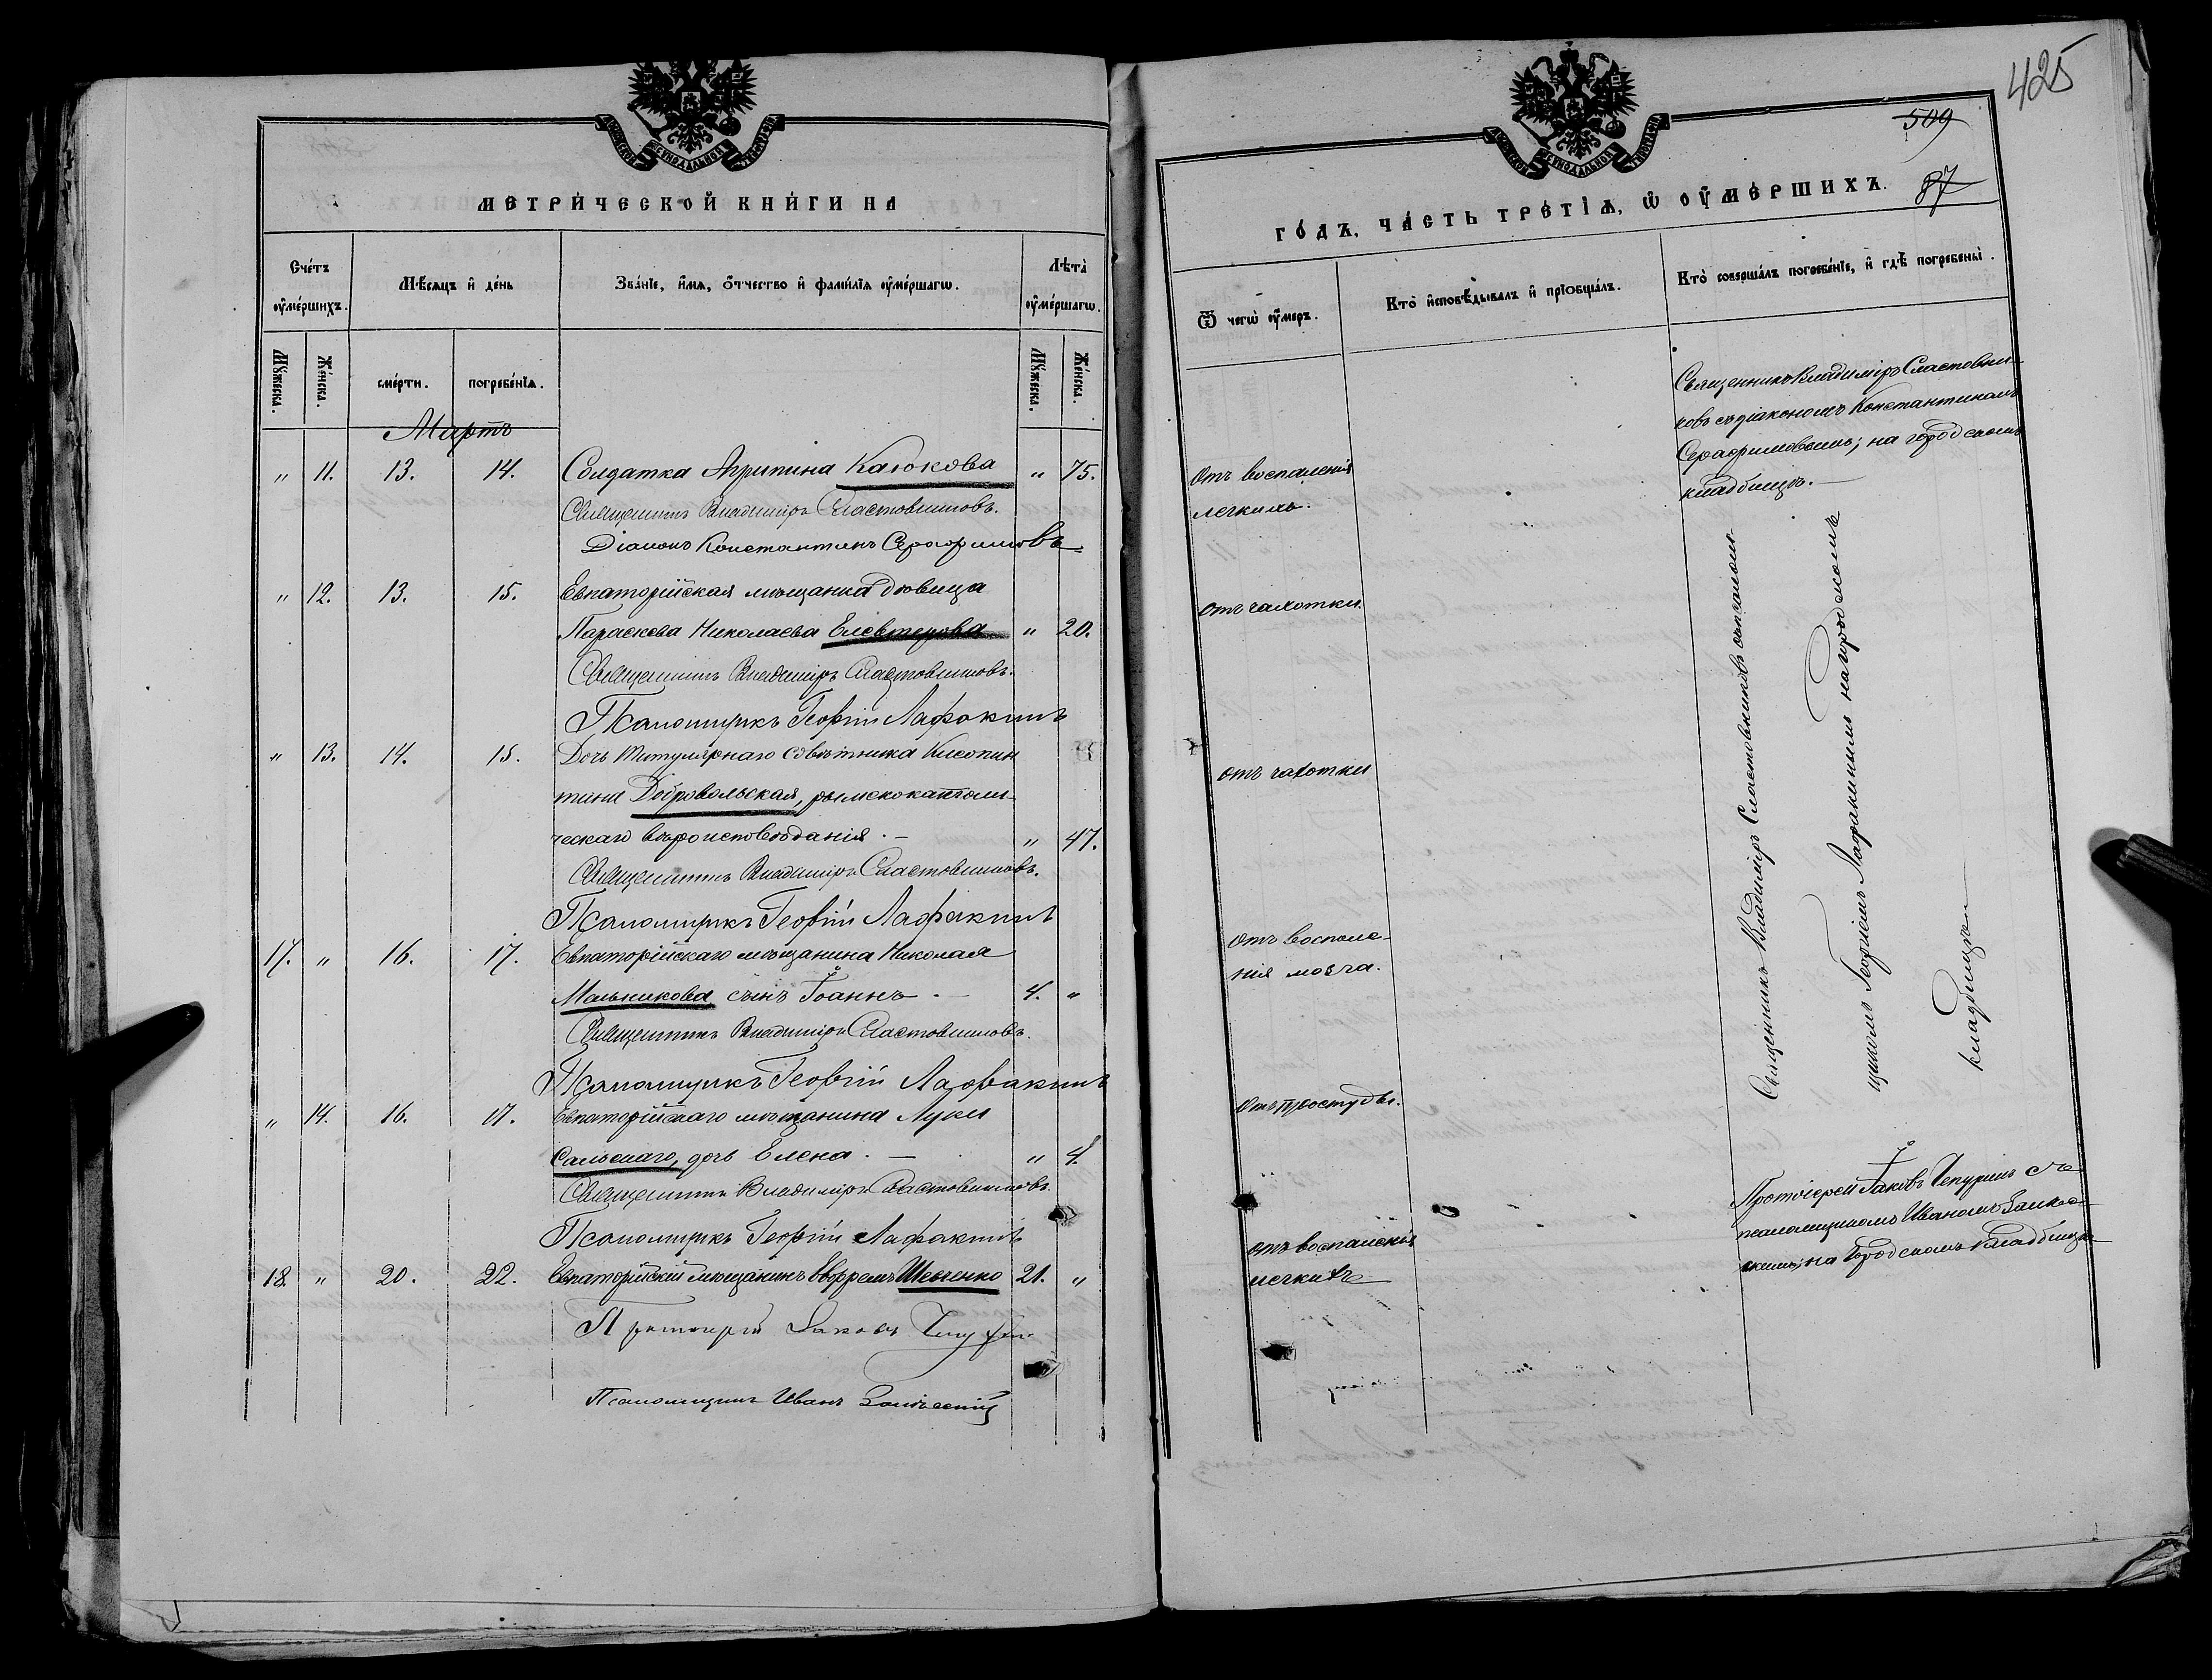 МЕТРИЧЕСКОЙ КНИГИ НА
Счетъ
оумершихъ.
Мѣсяцъ и день
Званіе, имя, отчество и фамилія оумершагѡ.
Лѣта
оумершагѡ.
Мꙋжеска.
Женска.
смерти.
погребенїѧ.
Мꙋжеска.
Женска.
Мартъ
" 11. 13. 14. Солдатка Агрипина Катокова " 75.
Священникъ Владиміръ Сластовниковъ.
Діаконъ Константинъ Серафимовъ
" 12. 13. 15. Евпаторійская мѣщанка дѣвица
Параскева Николаева Елевтерова " 20.
Священникъ Владиміръ Сластовниковъ.
Псаломщикъ Георгій Лафакинъ
" 13. 14. 15. Дочь Титулярнаго Совѣтника
Добровольская, римскокатоли-
ческаго вѣроисповѣданія. " 47.
Священникъ Владиміръ Сластовниковъ.
Псаломщикъ Георгій Лафакинъ
17. " 16. 17. Евпаторійскаго мѣщанина Николая
Мальникова сынъ Іоаннъ 4. "
Священникъ Владиміръ Сластовниковъ.
Псаломщикъ Георгій Лафакинъ
" 14. 16. 17. Евпаторійскаго мѣщанина Луки
Сальскаго, дочь Елена. " 4.
Священникъ Владиміръ Сластовниковъ
Псаломщикъ Георгій Лафакинъ
18. " 20. 22. Евпаторійскій мѣщанинъ Ефремъ Шевченко 21. "
Протоіерей Іаковъ Чепуринъ
Псаломщикъ Иванъ
425
509
87
ГОДЪ, ЧАСТЬ ТРЕТІѦ, Ѡ ОУМЕРШИХЪ.
Ѿ чегѡ оумеръ.
Кто исповѣдывалъ и прїобщалъ.
Кто совершалъ погребенїе, и гдѣ погребены.
Священникъ Владиміръ Сластовни-
ковъ съ діакономъ Константиномъ
Серафимовымъ; на городскомъ
кладбищѣ.
Отъ воспаленія
легкихъ.
отъ чахотки.
отъ чахотки
отъ воспале-
нія мозга.
Отъ простуды.
отъ воспаленія
легкихъ
Священникъ Владиміръ Сластовниковъ съ псалом-
щикомъ Георгіемъ Лафакинымъ на городскомъ
кладбищѣ
Протоіерей Іаковъ Чепуринъ съ
псаломщикомъ Иваномъ
на Городскомъ кладбищѣ